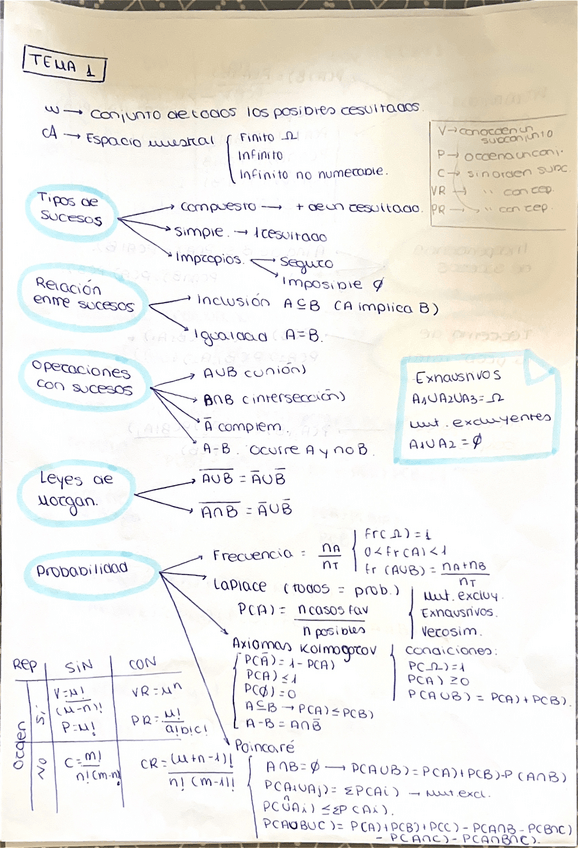 TEMA 1
ω → conjunto de todos los posibles resultados.
A → Espacio muestral { Finito Ω
Infinito
Infinito no numerable.
V → conocaen un
succonjunto
P → ocaena un conj.
C → sin orden
VR → " con rep
PR → " con rep.
Tipos de sucesos
compuesto → + de un resultado.
simple. → 1 resultado
Impropios. Seguro
Imposible ∅
Relación entre sucesos
Inclusión A⊆B (A implica B)
Igualdad A=B.
operaciones con sucesos
AUB (unión)
B∩B (intersección)
Ā complem.
A-B. ocurre A y no B.
Exhaustivos
A1UA2UA3=Ω
Mut. excluyentes
A1UA2=∅
Leyes de Morgan.
\overline{AUB} = ĀUB̄
\overline{A∩B} = ĀUB̄
Probabilidad
Frecuencia = nA/nT { fr(Ω)=1
0<fr(A)<1
fr(AUB)= nA+nB/nT
Laplace (todos = prob.) | Mut. excluy.
P(A) = n casos fav/n posibles | Exhaustivos.
Verosim.
Axiomas Kolmogorov
P(Ā)=1-P(A)
P(A)≤1
P(∅)=0
A⊆B → P(A)≤P(B)
A-B=A∩B̄
condiciones:
P(Ω)=1
P(A)≥0
P(AUB)=P(A)+P(B).
Poincaré
A∩B=∅ → P(AUB)=P(A)+P(B)-P(A∩B)
P(AiUAj)=ΣP(Ai) → Mut. excl.
P(ÛAi)≤ΣP(Ai).
P(AUBUC)=P(A)+P(B)+P(C)-P(A∩B-P(B∩C)
-P(A∩C)-P(A∩B∩C).
REP SIN CON
Orden
Si V=m!/(m-n)! VR=mⁿ
P=m! PR=m!/a!b!c!
NO C=m!/n!(m-n) CR=(m+n-1)!/n!(m-1)!